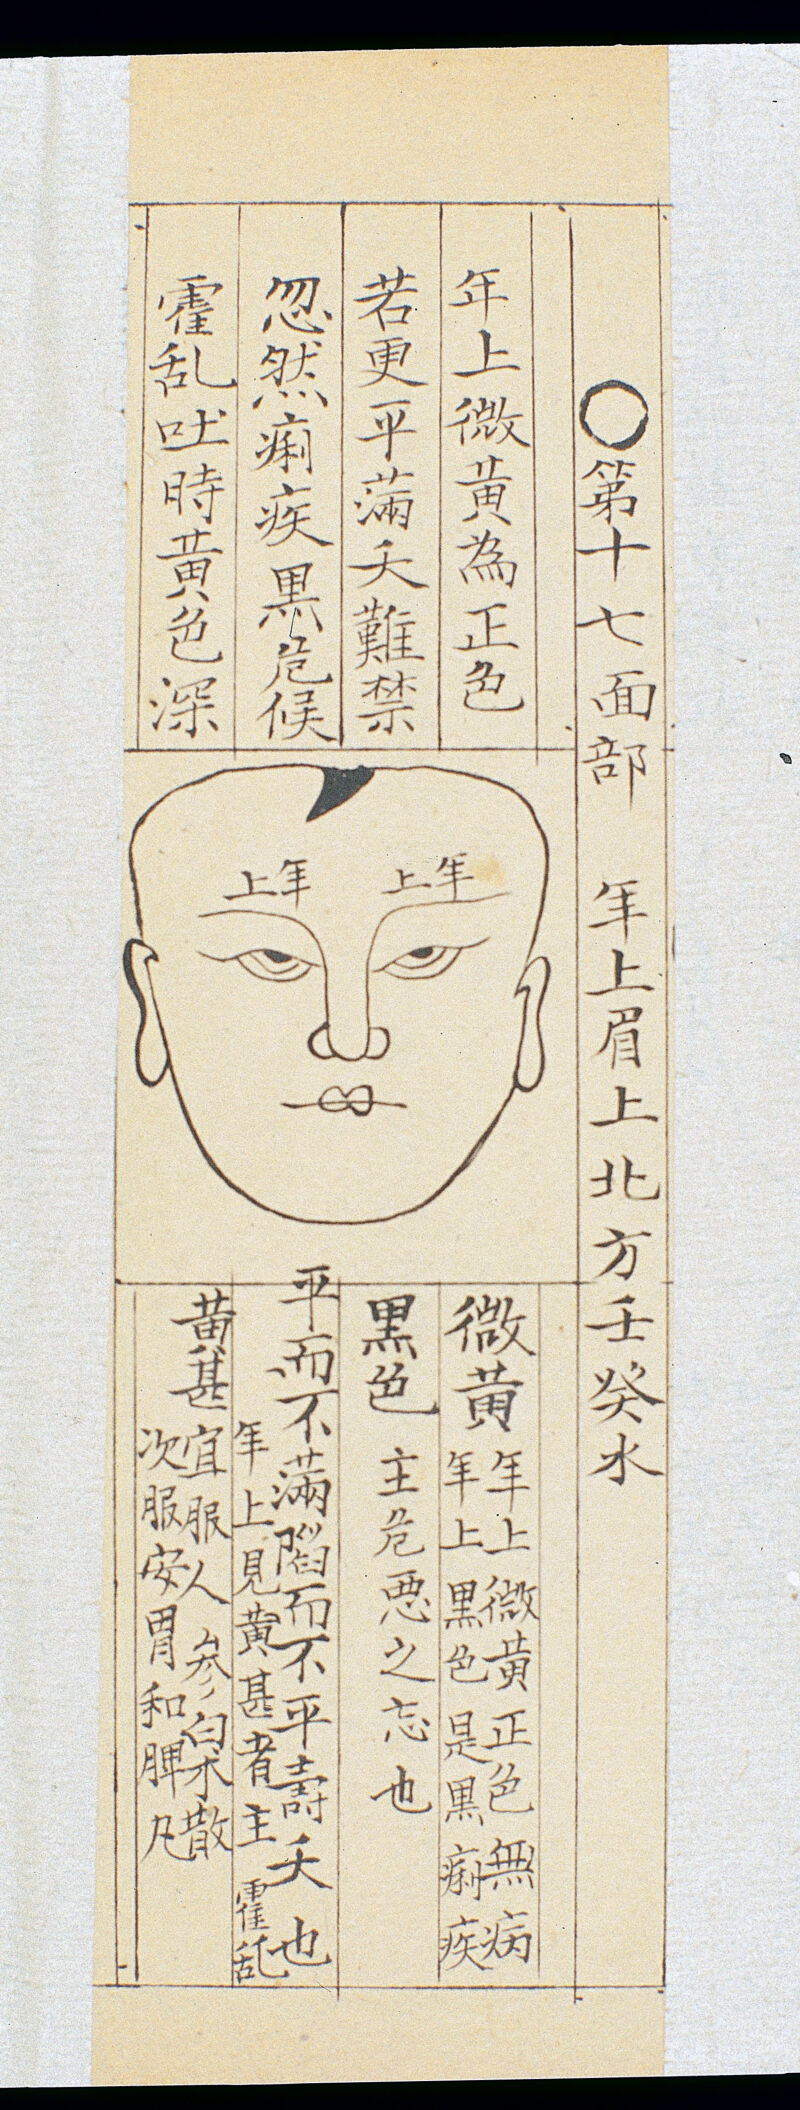 〇第十七面部　年上眉上北方壬癸水
年上微黄為正色
若更平滿夭難禁
忽然痢疾黒危候
霍乱吐時黄色深
年上
年上
微黄 年上微黄正色無病
年上黒色是黒痢疾
黒色 主危悪之忘也
平而不滿陷而不平壽夭也
年上見黄甚者主霍乱
黄甚 宜服人参白朮散
次服安胃和脾凡